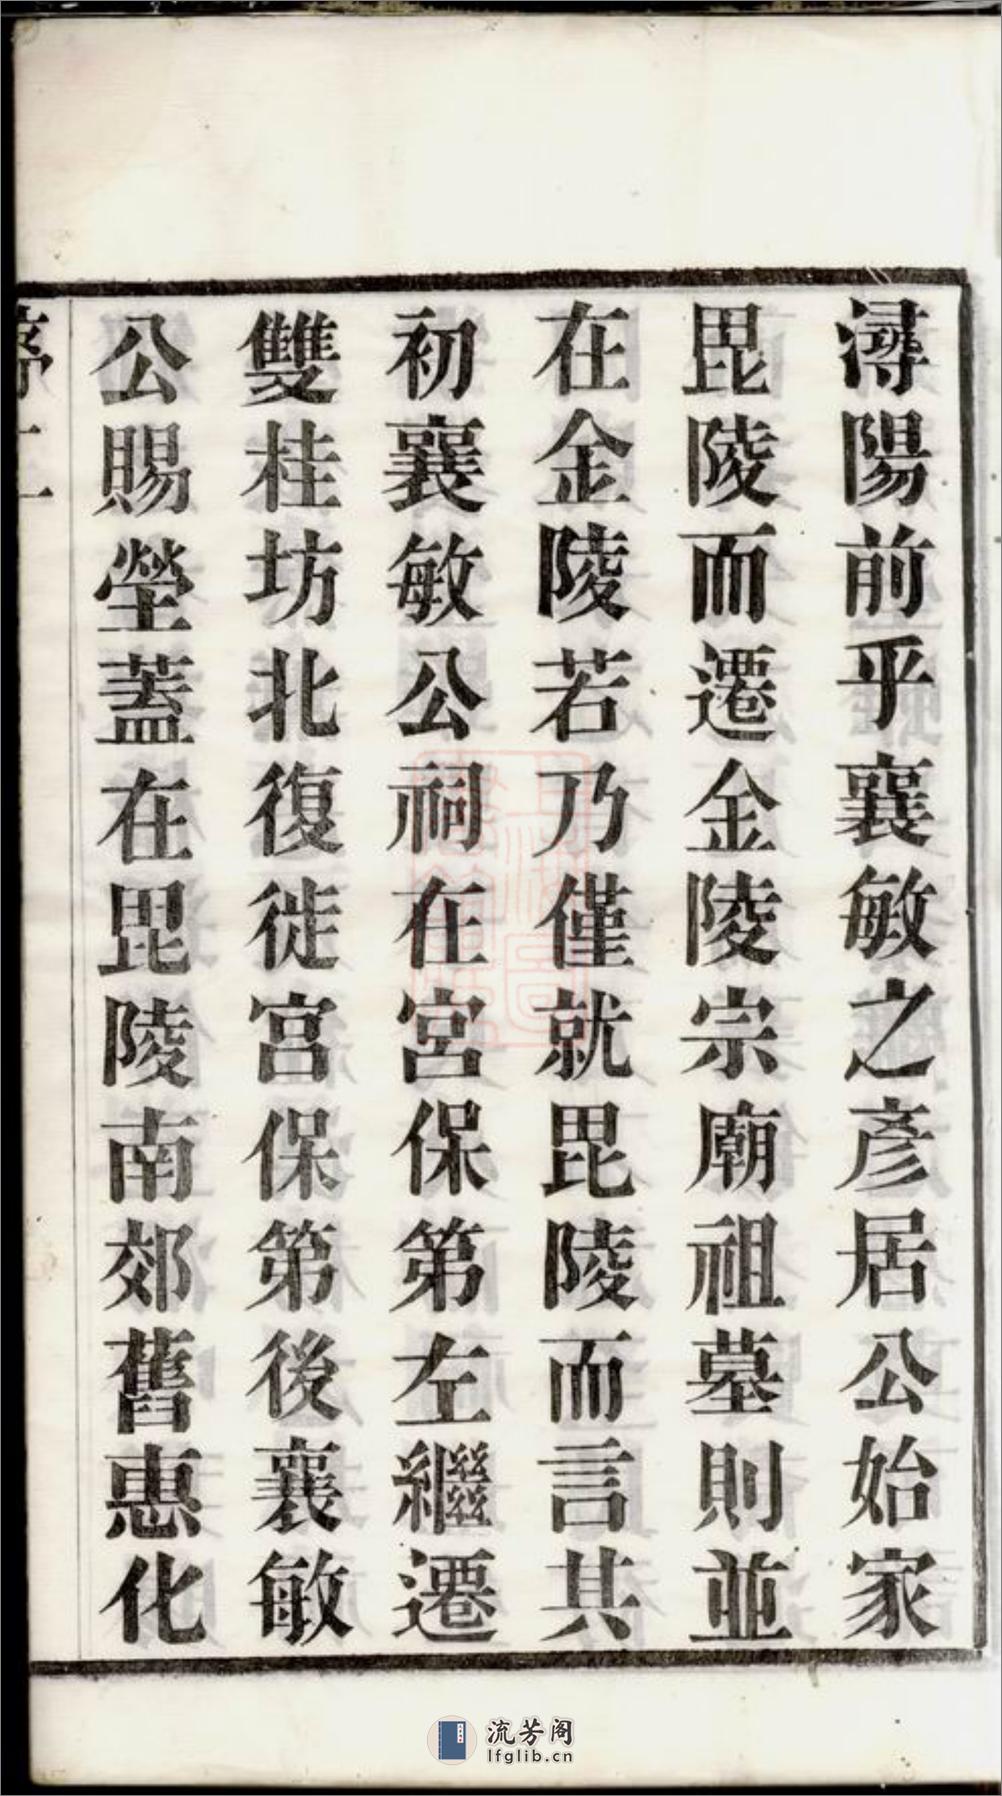 潯陽前乎襄敏之彥居公始家
毘陵而遷金陵宗廟祖墓則並
在金陵若乃僅就毘陵而言其
初襄敏公祠在宮保第左繼遷
雙桂坊北復徙宮保第後襄敏
公賜塋蓋在毘陵南郊舊惠化
序二
流芳阁
lfglib.cn